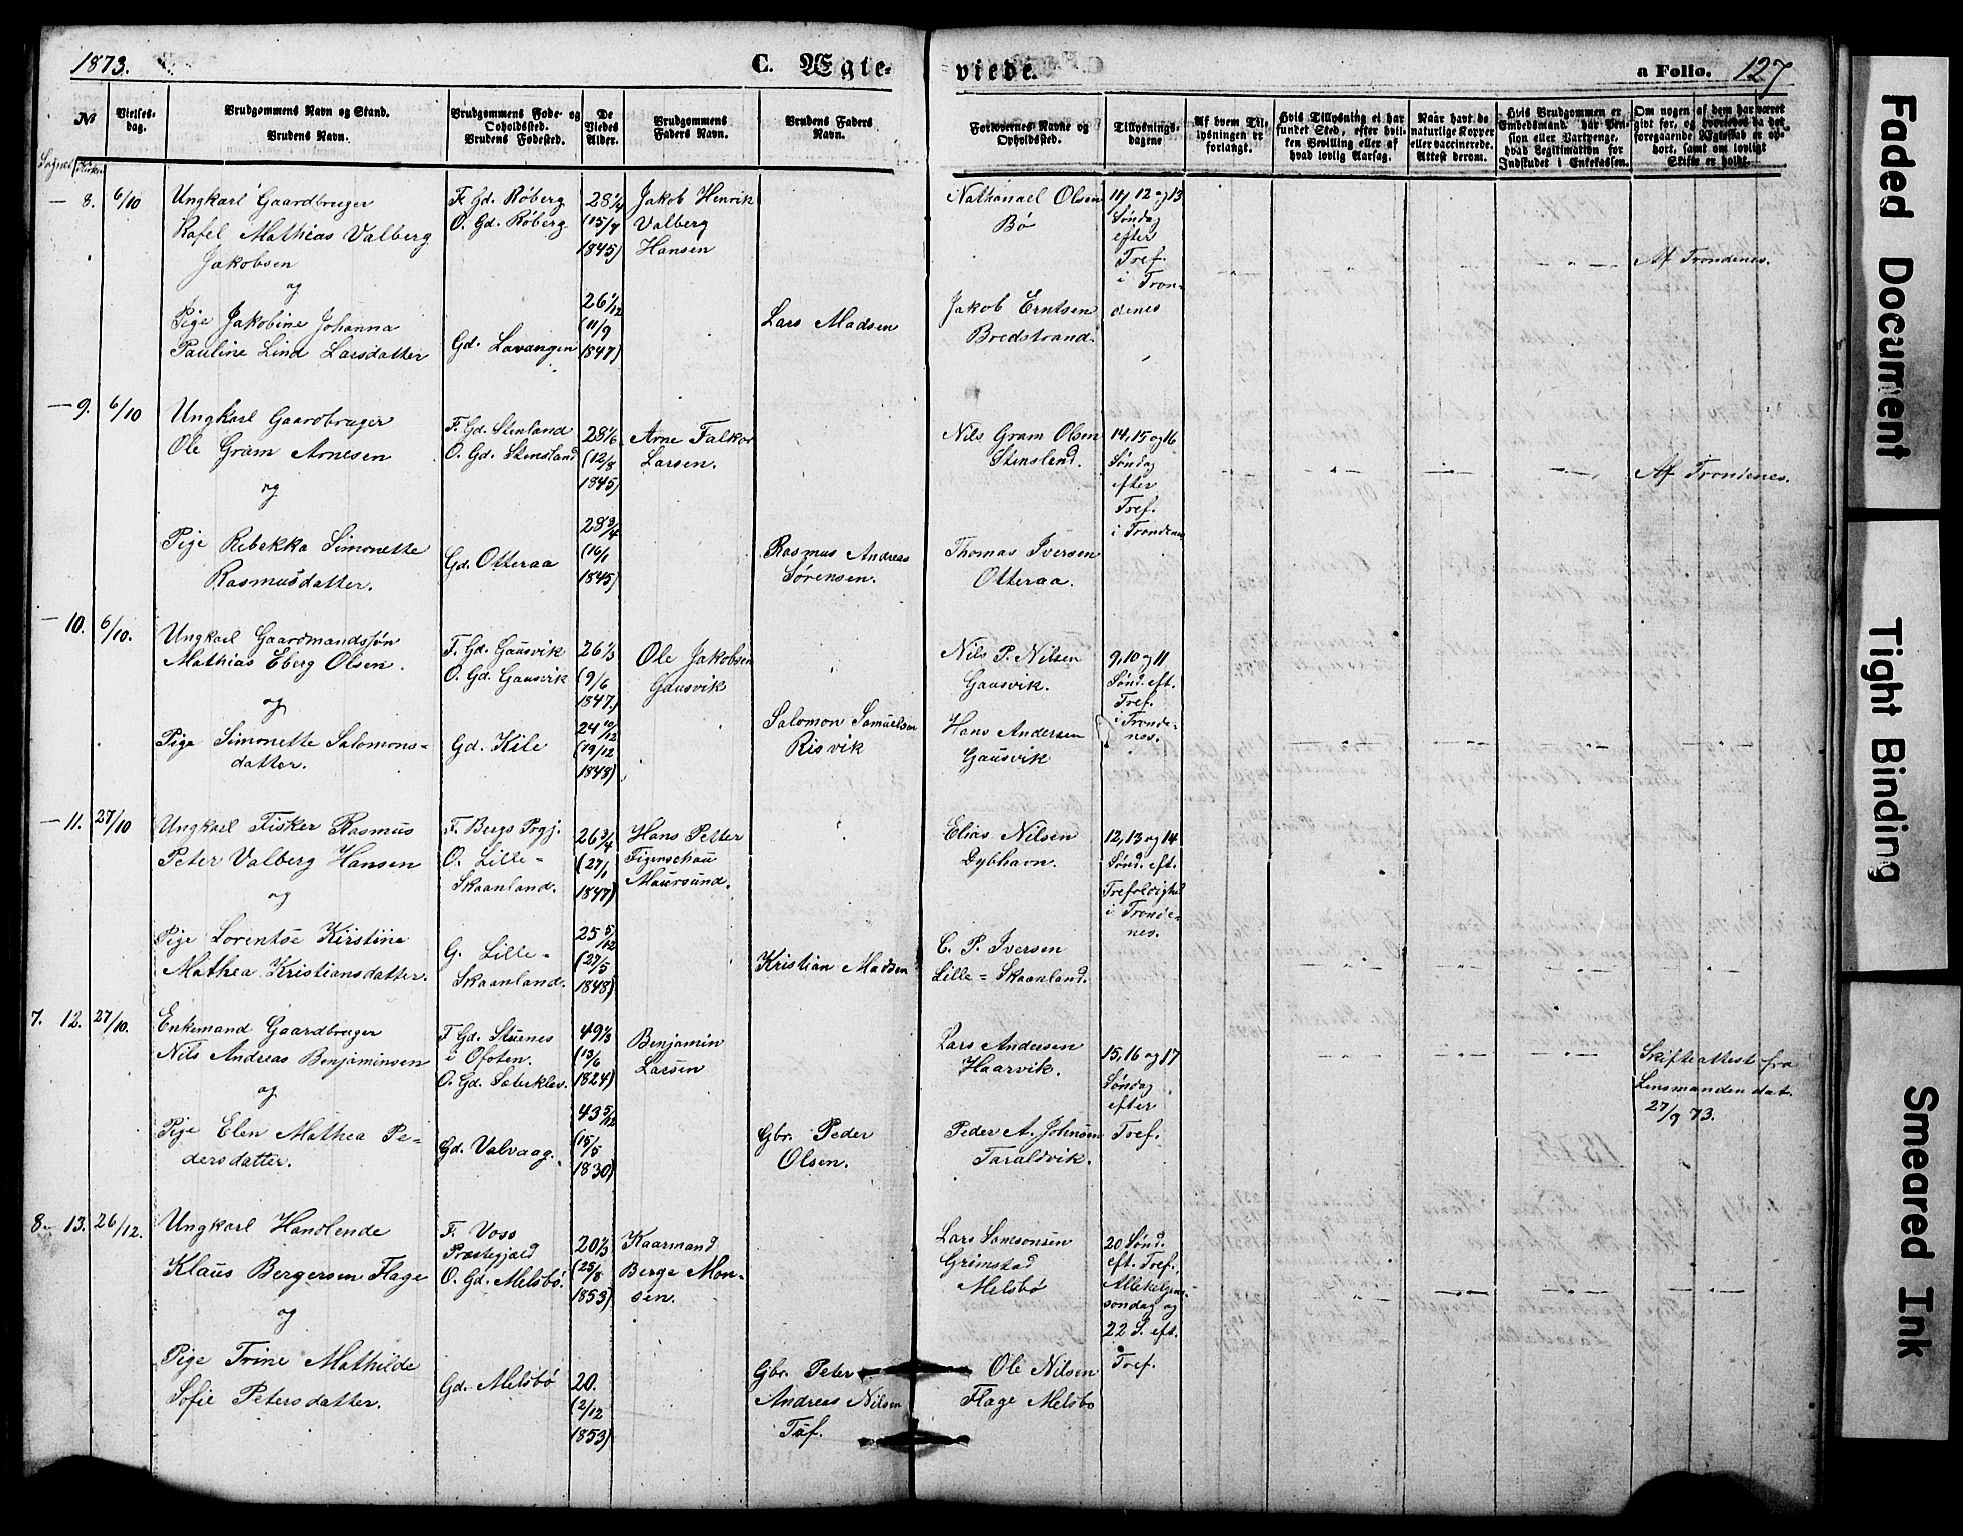 1873.
C. Ægte-
viede.
a Folio. 127
No
Vielses-
dag.
Brudgommens Navn og Stand.
Brudens Navn.
Brudgommens Føde- og
Opholdssted.
Brudens Fødested.
De
Viedes
Alder.
Brudgommens
Faders Navn.
Brudens Faders
Navn.
Forlovernes Navne og
Opholdssted.
Tillysnings-
dagene
Af hvem Til-
lysningen er
forlangt.
Hvis Tillysning ei har
fundet Sted, efter hvil-
ken Bevilling eller af
hvad lovlig Aarsag.
Naar havt de
naturlige Kopper
eller vaccinerede.
Attest derom.
Hvis Brudgommen er
Embedsmand, har Pen-
sion eller Vartpenge,
hvad Legitimation for
Indskudet i Enkekassen.
Om nogen af dem har været
gift før, og hvorledes da det
foregaaende Ægteskab er op-
hørt, samt om lovligt
Skifte er holdt.
— 8. 6/10
Ungkarl Gaardbruger
Rafel Mathias Valberg
Jakobsen
og
Pige Jakobine Johanna
Pauline Lind Larsdatter
F. Gd. Røberg
O. Gd. Røberg
Gd. Lavangen
28 1/4
(15/7
1845)
26 1/12
(11/9
1847)
Jakob Henrik
Valberg
Hansen
Lars Madsen
Nathanael Olsen
Bø
Jakob Erntsen
Bredstrand.
11, 12 og 13
Søndag
efter
Tref.
i Tron-
denes
Af Trondenes.
— 9. 6/10
Ungkarl Gaardbruger
Ole Gram Arnesen
og
Pige Rebekka Simonette
Rasmusdatter.
F. Gd. Stenland
O. Gd. Stensland
Gd. Otteraa
28 1/6
(12/8
1845)
28 3/4
(16/1
1845)
Arne Falkor
Larsen.
Rasmus Andreas
Sørensen.
Nils Gram Olsen
Stensland.
Thomas Iversen
Otteraa.
14, 15 og 16
Søndag
efter
Tref.
i Trondenes
Af Trondenes.
— 10. 6/10.
Ungkarl Gaardmandssøn
Mathias Eberg Olsen.
og
Pige Simonette Salomons-
datter.
F. Gd. Gausvik
O. Gd. Gausvik
Gd. Kile
26 1/3
(9/6
1847.)
24 10/12
(19/12
1848)
Ole Jakobsen
Gausvik
Salomon Samuelsen
Risvik
Nils P. Nilsen
Gausvik.
Hans Andersen
Gausvik
9, 10 og 11
Sønd. eft.
Tref.
i Tronde-
nes.
— 11. 27/10
Ungkarl Fisker Rasmus
Peter Valberg Hansen
og
Pige Lorentse Kirstine
Mathea Kristiansdatter.
F. Bergs Prgj.
O. Lille-
Skaanland.
G. Lille-
Skaanland.
26 3/4
(27/1
1847)
25 5/12
(27/5
1848)
Hans Petter
Figenschau
Maursund.
Kristian Madsen
Elias Nilsen
Dybhavn.
C. P. Iversen
Lille-Skaanland.
12, 13 og 14
Sønd. eft.
Trefoldighed
i Tronde-
nes.
7. 12. 27/10.
Enkemand Gaardbruger
Nils Andreas Benjaminsen
og
Pige Elen Mathea Pe-
dersdatter.
F Gd. Skenes
i Ofoten.
O. Gd. Sæterklev.
Gd. Valvaag.
49 1/3
(13/6
1824)
43 5/12
(15/5
1830)
Benjamin
Larsen
Gbr. Peder
Olsen.
Lars Andersen
Haarvik.
Peder A. Johnsen
Taraldvik.
15, 16 og 17
Søndag
efter
Tref.
Skifteattest fra
Lensmanden dat.
27/9 73.
8. 13. 26/12.
Ungkarl Handlende
Klaus Bergersen Flage
og
Pige Trine Mathilde
Sofie Petersdatter.
F. Voss
Præstegjæld
O. Gd. Melsbø.
Gd. Melsbø
20 1/3
(25/8
1853)
20.
(2/12
1853)
Kaarmand
Berge Mon-
sen.
Gbr. Peter
Andreas Nilsen
Tuf.
Lars Samsonsen
Grimstad
Melsbø
Ole Nilsen
Flage Melsbø
20 Sønd.
eft. Tref.
Allehelgens-
søndag og
22 S. eft.
Tref.
Faded Document
Tight Binding
Smeared Ink